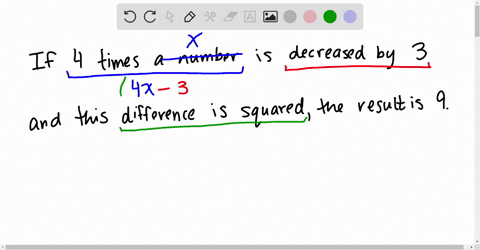 x
If 4 times a number is decreased by 3
(4x - 3
and this difference is squared, the result is 9.